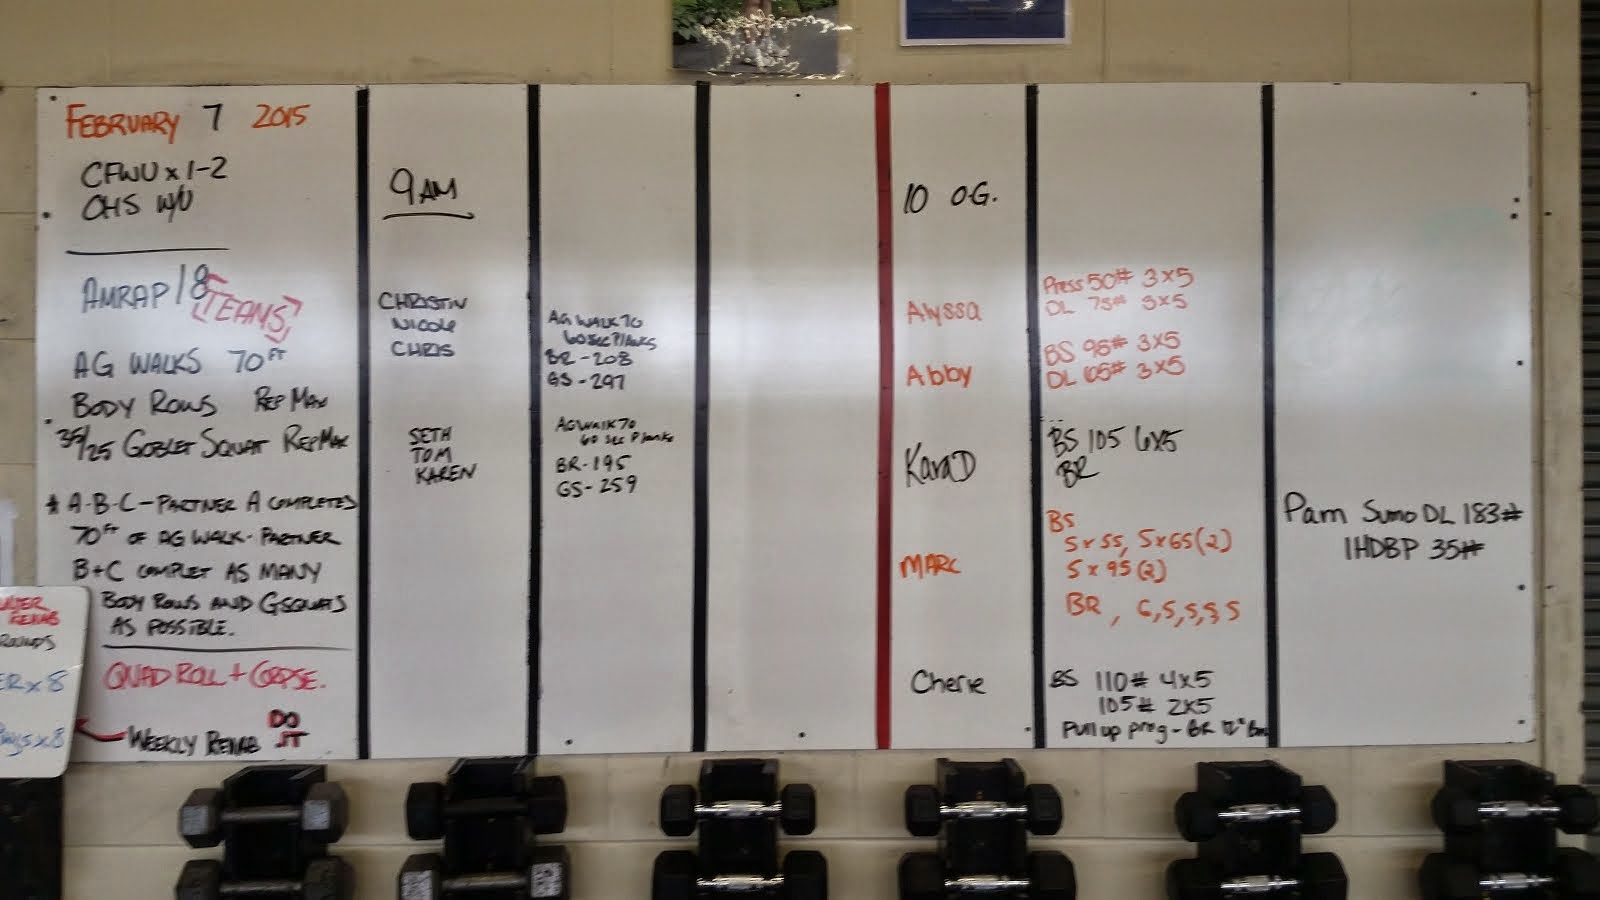 FEBRUARY 7 2015
CFWU x 1-2
OHS W/U
AMRAP 18
TEAMS
AG WALKS 70FT
BODY ROWS REP MAX
35/25 GOBLET SQUAT REP MAX
* A-B-C - PARTNER A COMPLETES
70FT OF AG WALK - PARTNER
B+C COMPLET AS MANY
BODY ROWS AND G SQUATS
AS POSSIBLE.
QUAD ROLL + CORPSE.
WEEKLY REHAB DO IT
REHAB
ROUNDS
ER x 8
x 8
9AM
CHRISTIN
NICOLE
CHRIS
SETH
TOM
KAREN
AG WALK 70
60 SEC PLANKS
BR - 208
GS - 297
AG WALK 70
60 sec Planks
BR - 195
GS - 259
10 O.G.
Alyssa
Press 50# 3x5
DL 75# 3x5
Abby
BS 95# 3x5
DL 65# 3x5
Kara D
BS 105 6x5
BR
MARC
BS
5 x 55, 5 x 65 (2)
5 x 95 (2)
BR, 6,5,5,5 5
Cherie
BS 110# 4x5
105# 2x5
Pull up prog - BR 12"
Pam Sumo DL 183#
1HDBP 35#